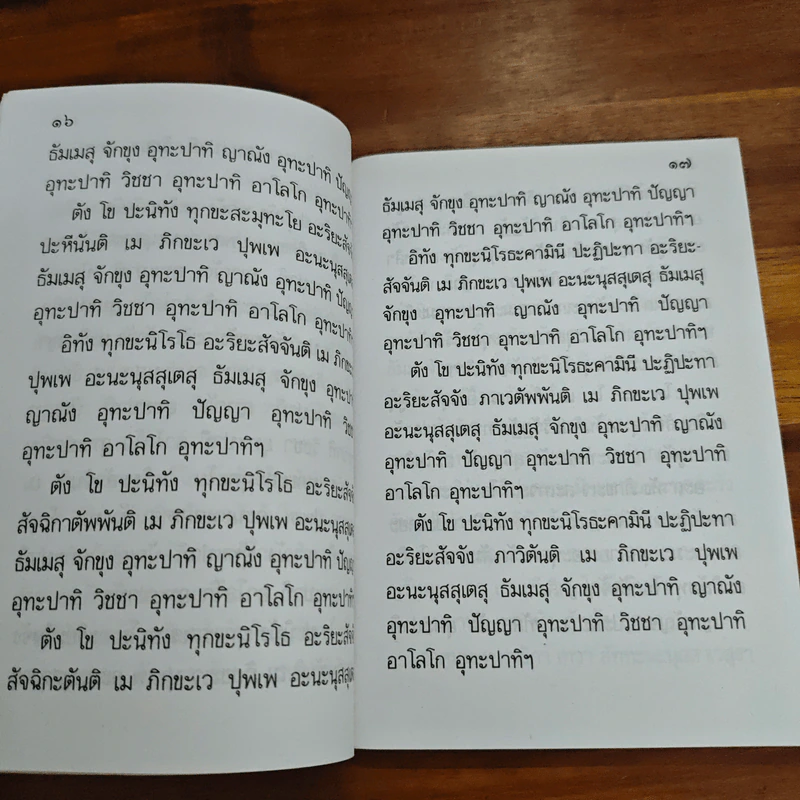 ๑๖
ธัมเมสุ จักขุง อุทะปาทิ ญาณัง อุทะปาทิ
อุทะปาทิ วิชชา อุทะปาทิ อาโลโก
ตัง โข ปะนิทัง ทุกขะสะมุทะโย
ปะหีนันติ เม ภิกขะเว ปุพเพ
ธัมเมสุ จักขุง อุทะปาทิ ญาณัง อุทะปาทิ
อุทะปาทิ วิชชา อุทะปาทิ อาโลโก
อิทัง ทุกขะนิโรโธ อะริยะสัจจันติ เม
ปุพเพ อะนะนุสสุเตสุ ธัมเมสุ จักขุง
ญาณัง อุทะปาทิ ปัญญา อุทะปาทิ
อุทะปาทิ อาโลโก อุทะปาทิฯ
ตัง โข ปะนิทัง ทุกขะนิโรโธ
สัจฉิกาตัพพันติ เม ภิกขะเว ปุพเพ
ธัมเมสุ จักขุง อุทะปาทิ ญาณัง อุทะปาทิ
อุทะปาทิ วิชชา อุทะปาทิ อาโลโก
ตัง โข ปะนิทัง ทุกขะนิโรโธ
สัจฉิกะตันติ เม ภิกขะเว ปุพเพ
๑๗
ธัมเมสุ จักขุง อุทะปาทิ ญาณัง อุทะปาทิ ปัญญา
อุทะปาทิ วิชชา อุทะปาทิ อาโลโก อุทะปาทิฯ
อิทัง ทุกขะนิโรธะคามินี ปะฏิปะทา อะริยะ-
สัจจันติ เม ภิกขะเว ปุพเพ อะนะนุสสุเตสุ ธัมเมสุ
จักขุง อุทะปาทิ ญาณัง อุทะปาทิ ปัญญา
อุทะปาทิ วิชชา อุทะปาทิ อาโลโก อุทะปาทิฯ
ตัง โข ปะนิทัง ทุกขะนิโรธะคามินี ปะฏิปะทา
อะริยะสัจจัง ภาเวตัพพันติ เม ภิกขะเว ปุพเพ
อะนะนุสสุเตสุ ธัมเมสุ จักขุง อุทะปาทิ ญาณัง
อุทะปาทิ ปัญญา อุทะปาทิ วิชชา อุทะปาทิ
อาโลโก อุทะปาทิฯ
ตัง โข ปะนิทัง ทุกขะนิโรธะคามินี ปะฏิปะทา
อะริยะสัจจัง ภาวิตันติ เม ภิกขะเว ปุพเพ
อะนะนุสสุเตสุ ธัมเมสุ จักขุง อุทะปาทิ ญาณัง
อุทะปาทิ ปัญญา อุทะปาทิ วิชชา อุทะปาทิ
อาโลโก อุทะปาทิฯ